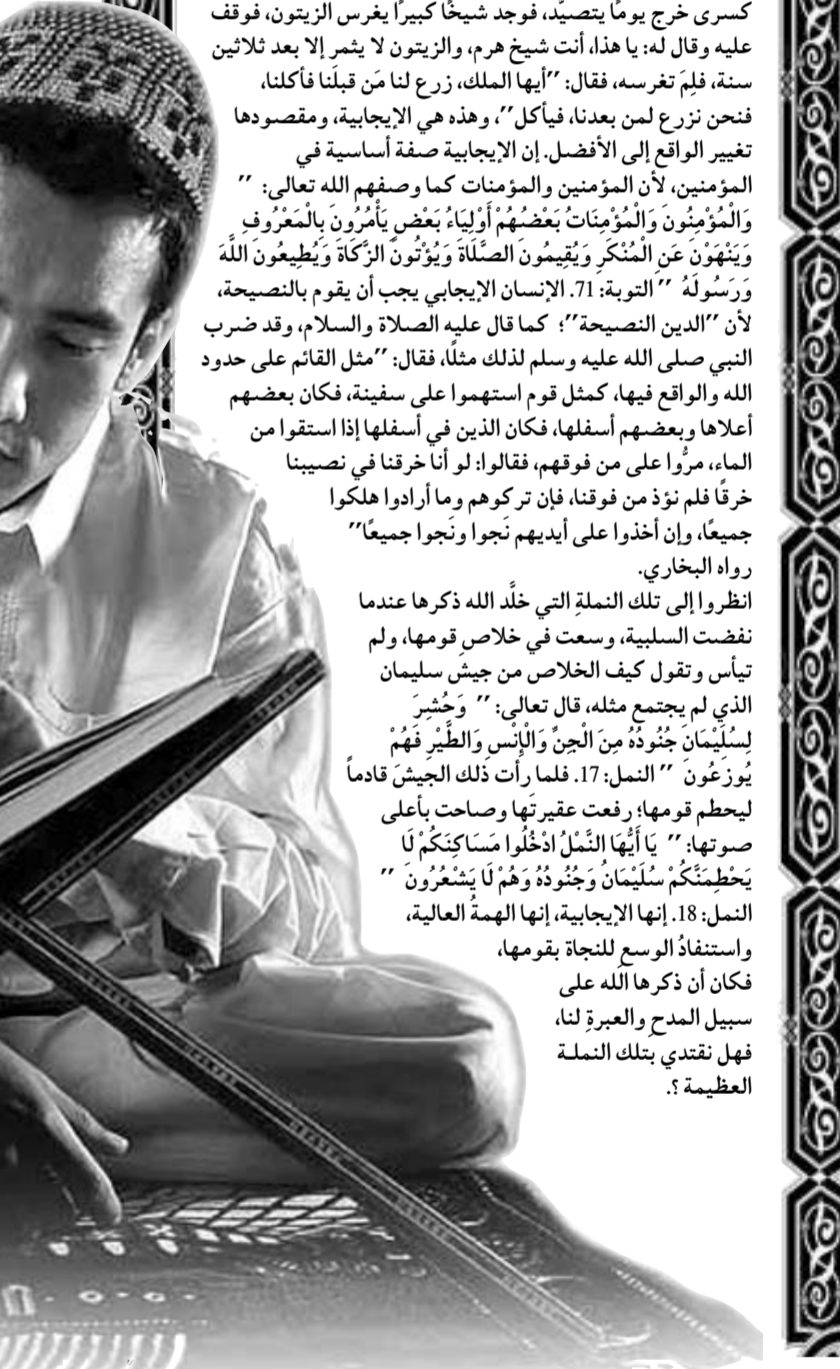 كسرى خرج يومًا يتصيَّد، فوجد شيخًا كبيرًا يغرس الزيتون، فوقف
عليه وقال له: يا هذا، أنت شيخ هرم، والزيتون لا يثمر إلا بعد ثلاثين
سنة، فلِمَ تغرسه، فقال: ”أيها الملك، زرع لنا مَن قبلَنا فأكلنا،
فنحن نزرع لمن بعدنا، فيأكل”، وهذه هي الإيجابية، ومقصودها
تغيير الواقع إلى الأفضل. إن الإيجابية صفة أساسية في
المؤمنين، لأن المؤمنين والمؤمنات كما وصفهم الله تعالى: ”
وَالْمُؤْمِنُونَ وَالْمُؤْمِنَاتُ بَعْضُهُمْ أَوْلِيَاءُ بَعْضٍ يَأْمُرُونَ بِالْمَعْرُوفِ
وَيَنْهَوْنَ عَنِ الْمُنْكَرِ وَيُقِيمُونَ الصَّلَاةَ وَيُؤْتُونَ الزَّكَاةَ وَيُطِيعُونَ اللَّهَ
وَرَسُولَهُ ” التوبة: 71. الإنسان الإيجابي يجب أن يقوم بالنصيحة،
لأن ”الدين النصيحة”؛ كما قال عليه الصلاة والسلام، وقد ضرب
النبي صلى الله عليه وسلم لذلك مثلًا، فقال: ”مثل القائم على حدود
الله والواقع فيها، كمثل قوم استهموا على سفينة، فكان بعضهم
أعلاها وبعضهم أسفلها، فكان الذين في أسفلها إذا استقوا من
الماء، مرُّوا على من فوقهم، فقالوا: لو أنا خرقنا في نصيبنا
خرقًا فلم نؤذ من فوقنا، فإن تركوهم وما أرادوا هلكوا
جميعًا، وإن أخذوا على أيديهم نَجوا ونَجوا جميعًا”
رواه البخاري.
انظروا إلى تلك النملةِ التي خلَّد الله ذكرها عندما
نفضت السلبية، وسعت في خلاصِ قومها، ولم
تيأس وتقول كيف الخلاص من جيش سليمان
الذي لم يجتمع مثله، قال تعالى: ” وَحُشِرَ
لِسُلَيْمَانَ جُنُودُهُ مِنَ الْجِنِّ وَالْإِنْسِ وَالطَّيْرِ فَهُمْ
يُوزَعُونَ ” النمل: 17. فلما رأت ذلك الجيشَ قادماً
ليحطم قومها؛ رفعت عقيرتَها وصاحت بأعلى
صوتها: ” يَا أَيُّهَا النَّمْلُ ادْخُلُوا مَسَاكِنَكُمْ لَا
يَحْطِمَنَّكُمْ سُلَيْمَانُ وَجُنُودُهُ وَهُمْ لَا يَشْعُرُونَ ”
النمل: 18. إنها الإيجابية، إنها الهمةُ العالية،
واستنفادُ الوسعِ للنجاة بقومها،
فكان أن ذكرها الله على
سبيل المدحِ والعبرةِ لنا،
فهل نقتدي بتلك النملة
العظيمة ؟.